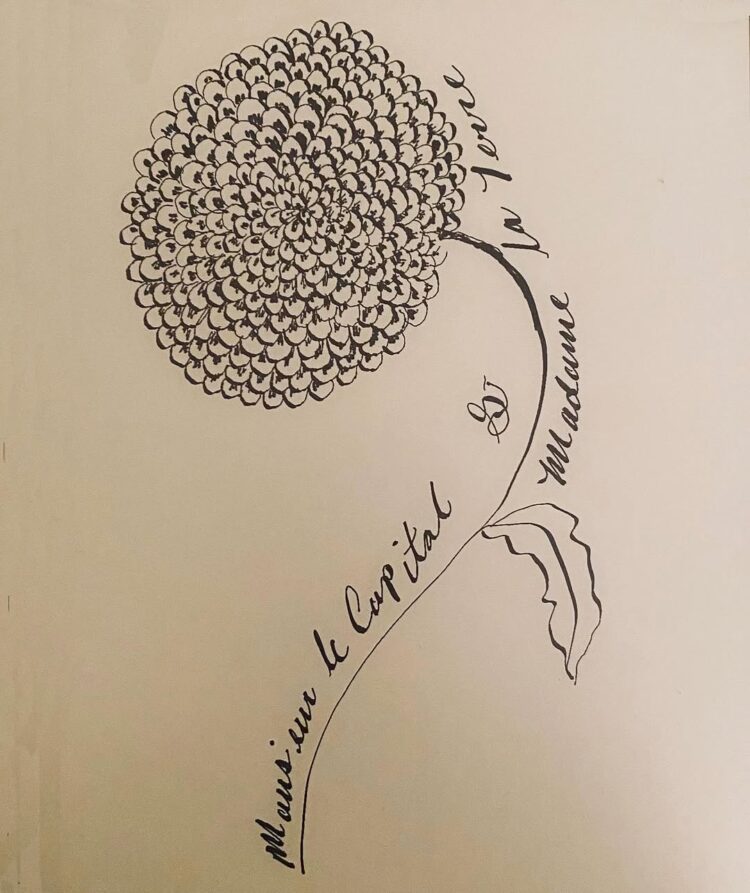 Monsieur le Capital
&
Madame
la Terre